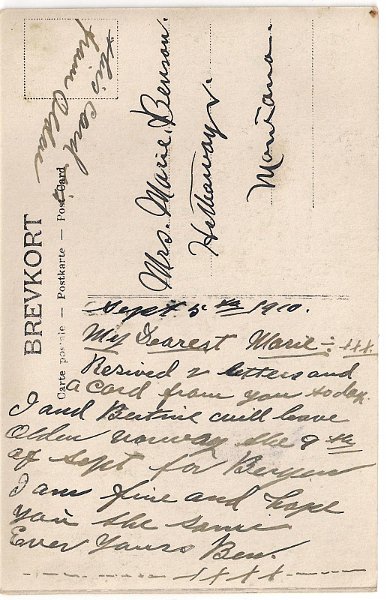 This Card
from Olden
BREVKORT
Carte postale — Postkarte — Post Card
Mrs. Marie Benson.
Hathaway
Montana.
Sept 5th 1910.
My Dearest Marie :- xxx
Recived 2 letters and
a card from you today.
I and Bertine will leave
Olden Norway the 9th
of Sept for Bergen
I am fine and hope
you the same
Ever Yours Ben.
xxxx